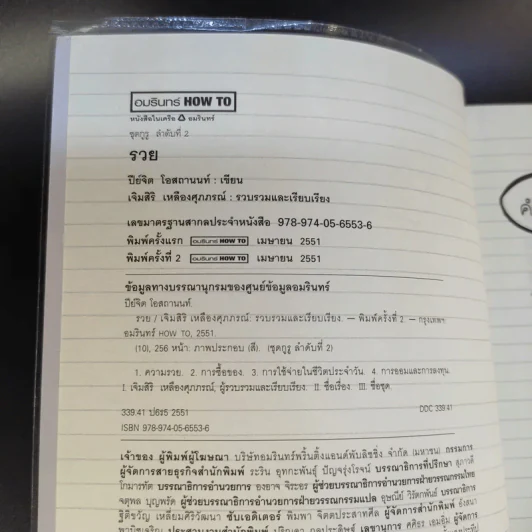 อมรินทร์ HOW TO
หนังสือในเครือ อมรินทร์
ชุดกูรู ลำดับที่ 2
รวย
ปิย์จิต โอสถานนท์ : เขียน
เจิมสิริ เหลืองศุภภรณ์ : รวบรวมและเรียบเรียง
เลขมาตรฐานสากลประจำหนังสือ 978-974-05-6553-6
พิมพ์ครั้งแรก อมรินทร์ HOW TO เมษายน 2551
พิมพ์ครั้งที่ 2 อมรินทร์ HOW TO เมษายน 2551
ข้อมูลทางบรรณานุกรมของศูนย์ข้อมูลอมรินทร์
ปิย์จิต โอสถานนท์.
รวย / เจิมสิริ เหลืองศุภภรณ์: รวบรวมและเรียบเรียง. — พิมพ์ครั้งที่ 2. — กรุงเทพฯ:
อมรินทร์ HOW TO, 2551.
(10), 256 หน้า: ภาพประกอบ (สี). (ชุดกูรู ลำดับที่ 2)
1. ความรวย. 2. การซื้อของ. 3. การใช้จ่ายในชีวิตประจำวัน. 4. การออมและการลงทุน.
I. เจิมสิริ เหลืองศุภภรณ์, ผู้รวบรวมและเรียบเรียง. II. ชื่อเรื่อง. III. ชื่อชุด.
339.41 2551 DDC 339.41
ISBN 978-974-05-6553-6
เจ้าของ ผู้พิมพ์ผู้โฆษณา บริษัทอมรินทร์พริ้นติ้งแอนด์พับลิชชิ่ง จำกัด (มหาชน) กรรมการ
ผู้จัดการสายธุรกิจสำนักพิมพ์ ระริน อุทกะพันธุ์ ปัญจรุ่งโรจน์ บรรณาธิการที่ปรึกษา สุภาวดี
โกมารทัต บรรณาธิการอำนวยการ องอาจ จิระอร ผู้ช่วยบรรณาธิการอำนวยการฝ่ายวรรณกรรมไทย
จตุพล บุญพรัด ผู้ช่วยบรรณาธิการอำนวยการฝ่ายวรรณกรรมแปล
ซับเอดิเตอร์ พิมพา จิตตประสาทศีล ผู้จัดการสำนักพิมพ์